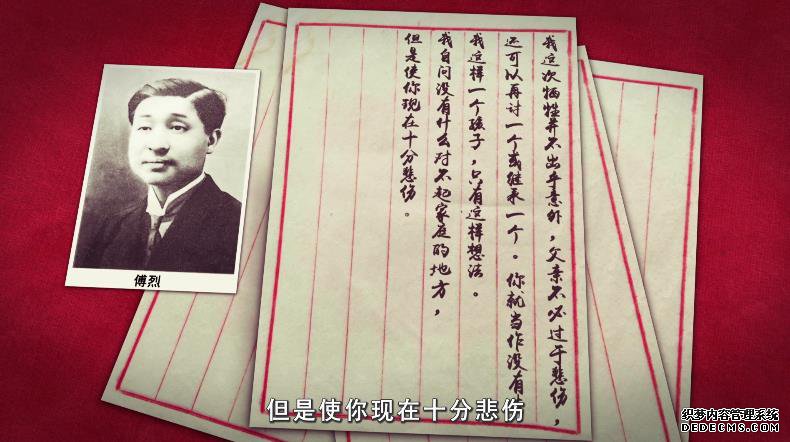 我这次牺牲并不出乎意外，父亲不必过于悲伤，
还可以再讨一个或继承一个。你就当作没有
我这样一个孩子，只有这样想法。
我自问没有什么对不起家庭的地方，
但是使你现在十分悲伤。
傅烈
但是使你现在十分悲伤
织梦内容管理系统
DEDECMS.COM